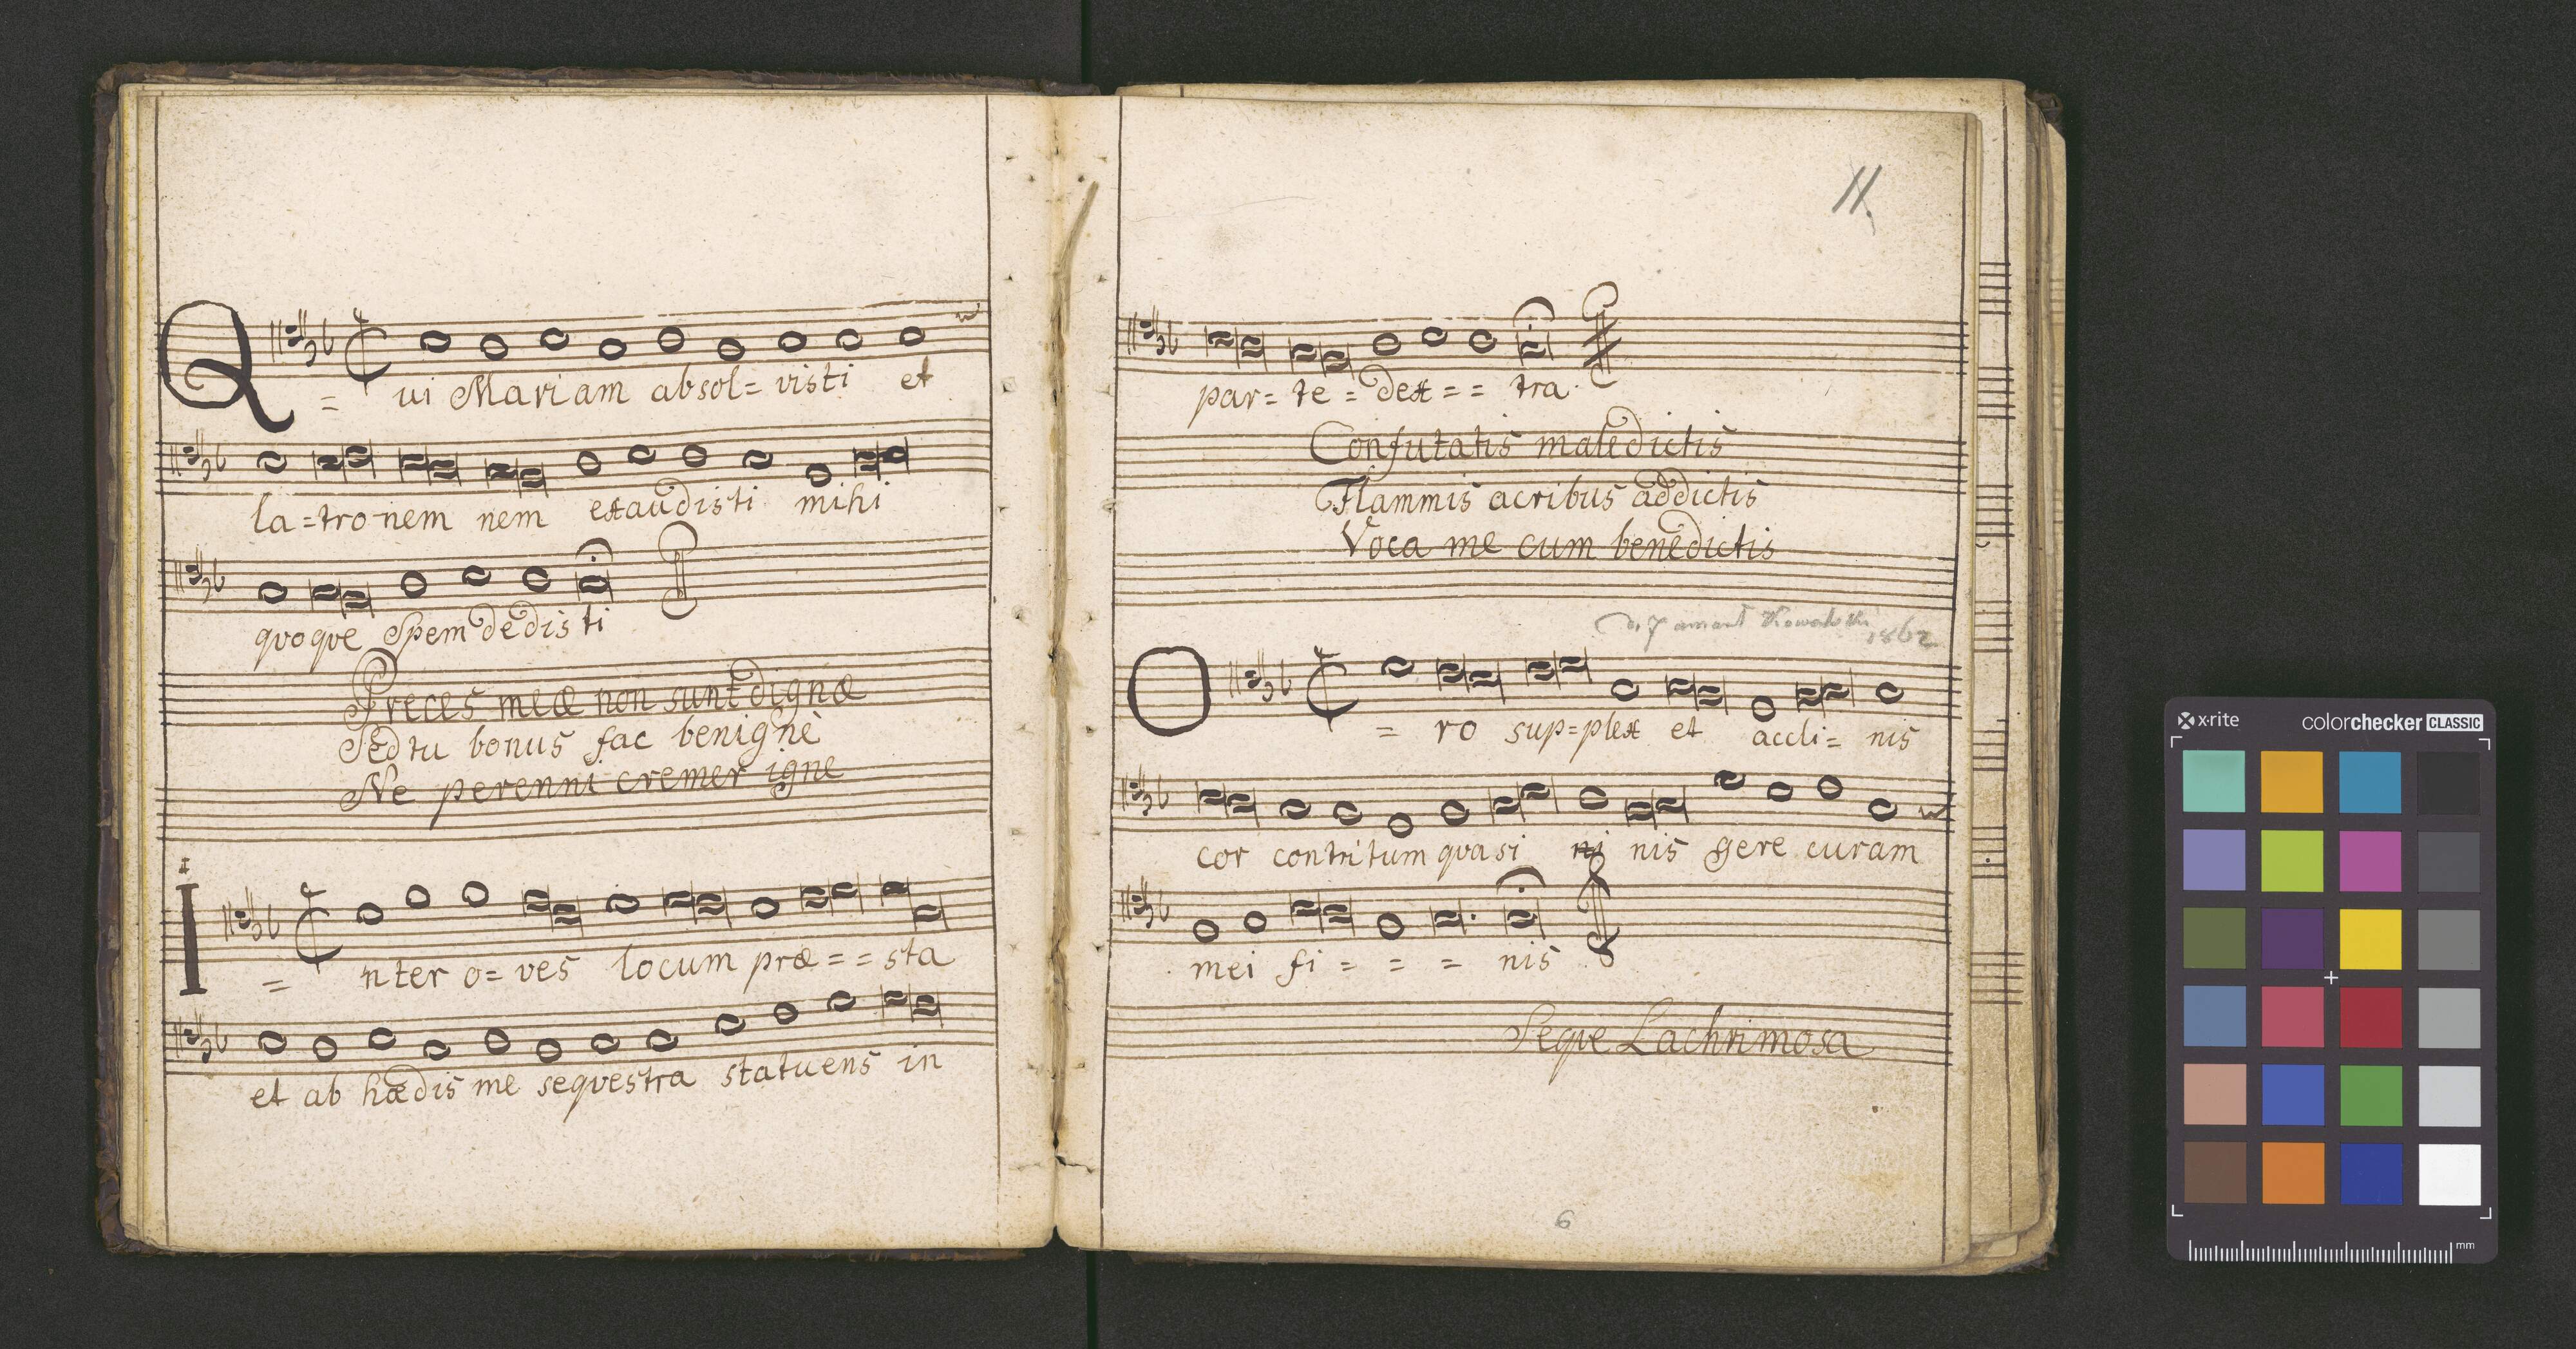 Qui Mariam absol=visti et
la=tro-nem nem exaudisti mihi
quoque Spem dedisti
Preces meæ non sunt dignæ
Sed tu bonus fac benignè
Ne perenni cremer igne
I = nter o=ves locum præ==sta
et ab hædis me sequestra statuens in
11.
par=te=dex==tra.
Confutatis maledictis
Flammis acribus addictis
Voca me cum benedictis
1862
O = ro sup=plex et accli=nis
cor contritum quasi ni nis gere curam
mei fi===nis
Seque Lachrimosa
6
x-rite
colorchecker CLASSIC
mm